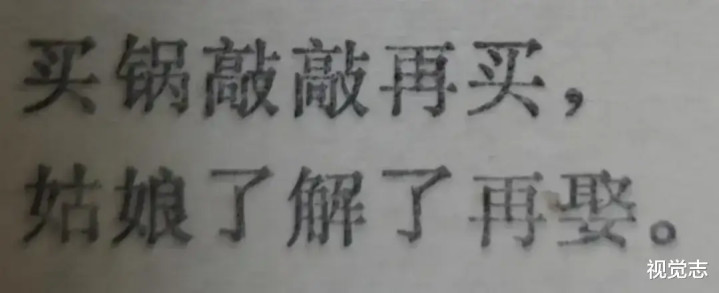 买锅敲敲再买，
姑娘了解了再娶。
视觉志